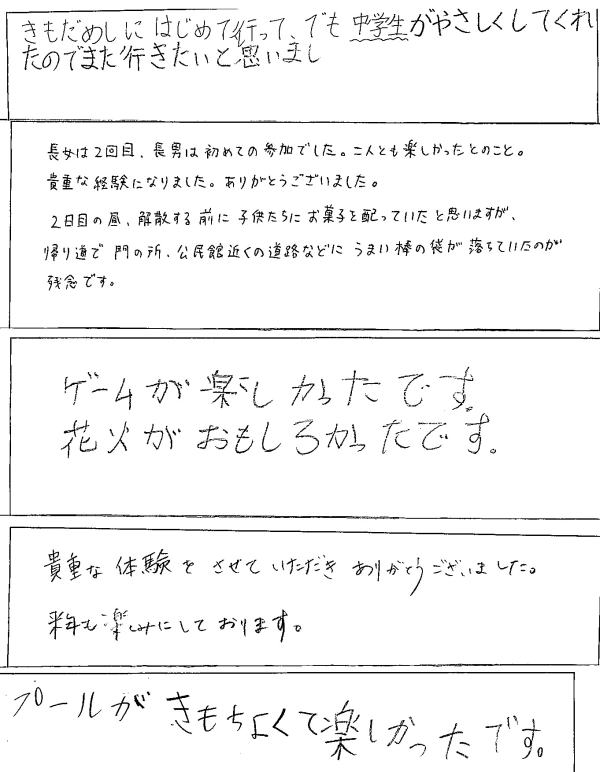 きもだめしに はじめて行って、でも 中学生がやさしくしてくれ
たのでまた行きたいと思いまし
長女は2回目、長男は初めての参加でした。二人とも楽しかったとのこと。
貴重な経験になりました。ありがとうございました。
2日目の昼、解散する前に子供たちにお菓子を配っていたと思いますが、
帰り道で 門の所、公民館近くの道路などに うまい棒の袋が落ちていたのが
残念です。
ゲームが楽しかったです。
花火がおもしろかったです。
貴重な体験をさせていただきありがとうございました。
来年も楽しみにしております。
プールがきもちよくて楽しかったです。